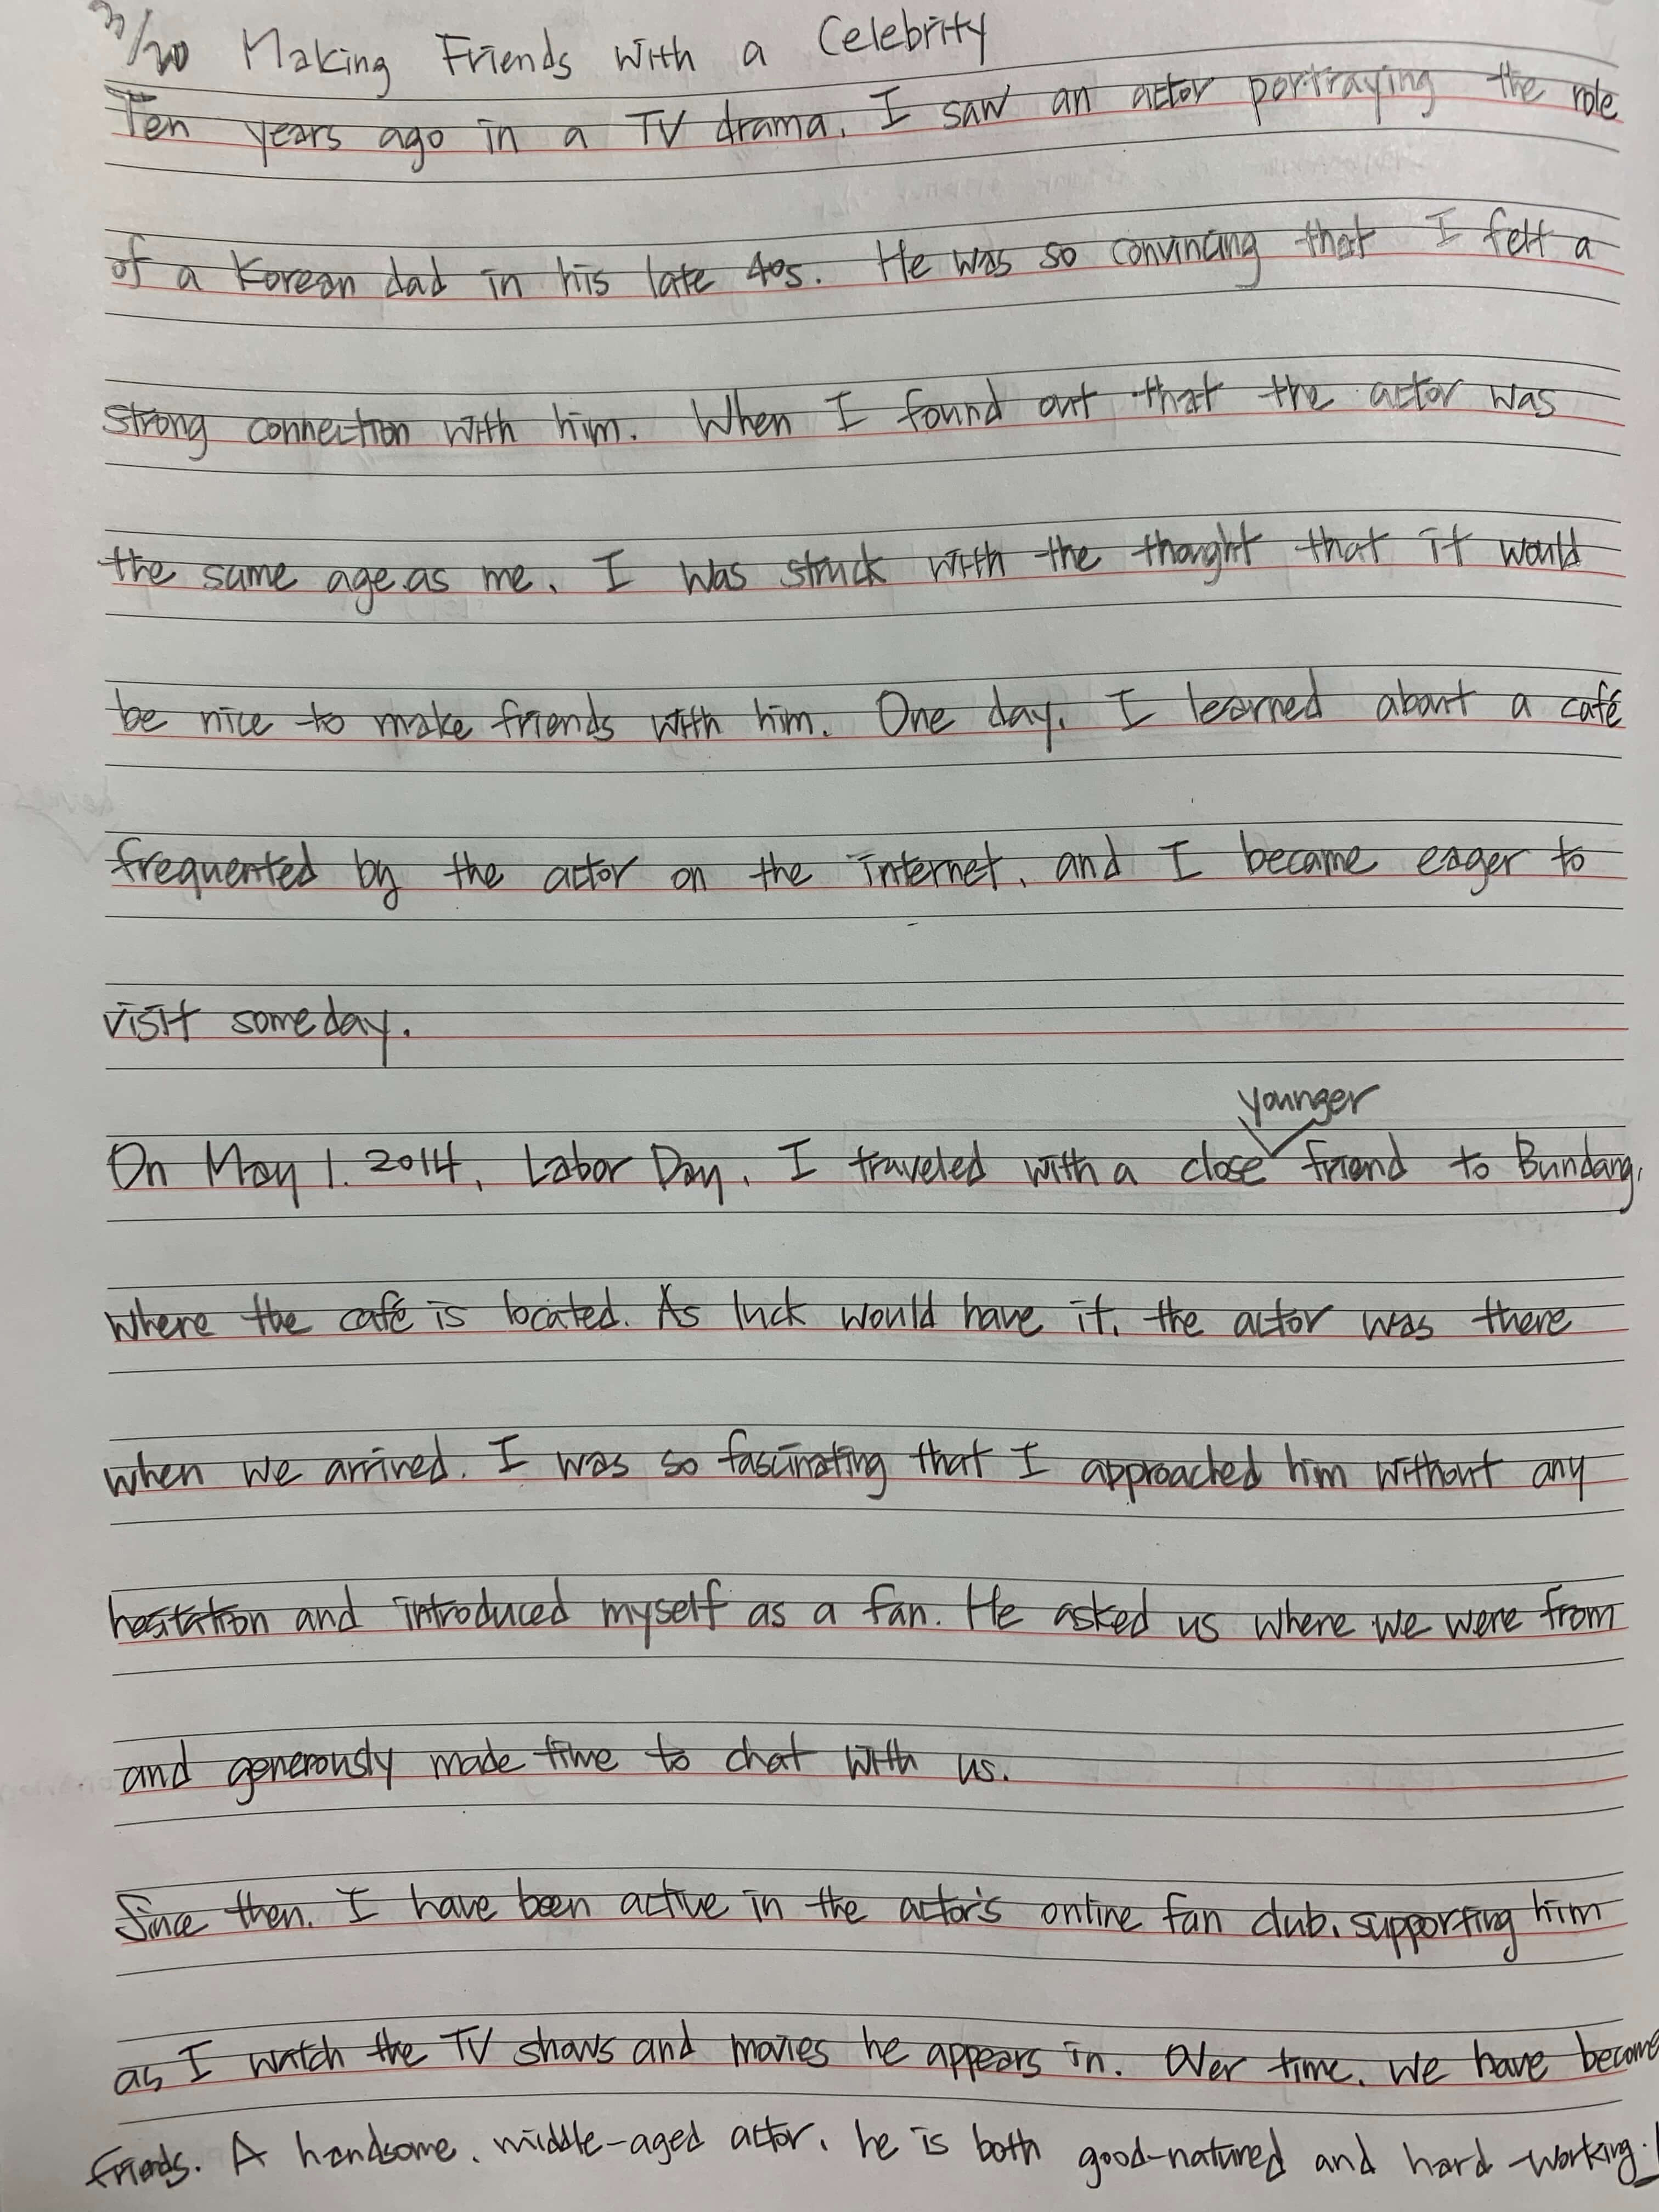 3/20 Making Friends with a Celebrity
Ten years ago in a TV drama, I saw an actor portraying the role
of a Korean dad in his late 40s. He was so convincing that I felt a
strong connection with him. When I found out that the actor was
the same age as me, I was struck with the thought that it would
be nice to make friends with him. One day, I learned about a café
frequented by the actor on the internet, and I became eager to
visit someday.
younger
On May 1, 2014, Labor Day, I traveled with a close friend to Bundang,
where the café is located. As luck would have it, the actor was there
when we arrived. I was so fascinating that I approached him without any
hesitation and introduced myself as a fan. He asked us where we were from
and generously made time to chat with us.
Since then, I have been active in the actor's online fan club, supporting him
as I watch the TV shows and movies he appears in. Over time, we have become
friends. A handsome, middle-aged actor, he is both good-natured and hard-working.